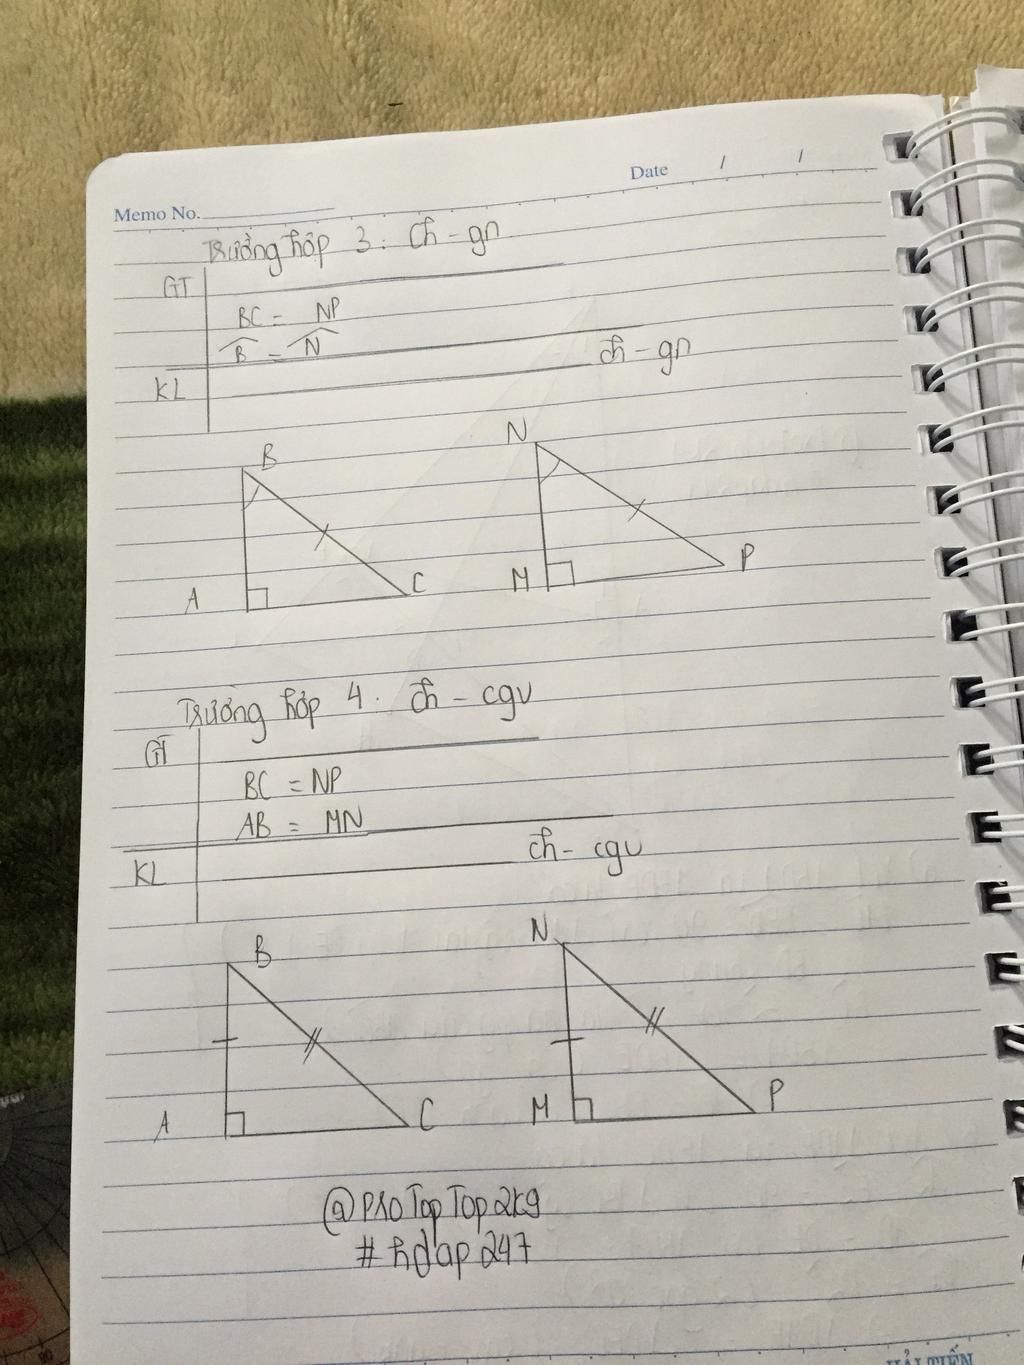 Date / /
Memo No.
Trường hợp 3: ch - gn
GT
BC = NP
B = N
ch - gn
KL
B
N
A
C
M
P
Trường hợp 4. ch - cgv
GT
BC = NP
AB = MN
ch - cgv
KL
B
N
A
C
M
P
@proTopTop2k9
#hdap247
HẢI TIẾN